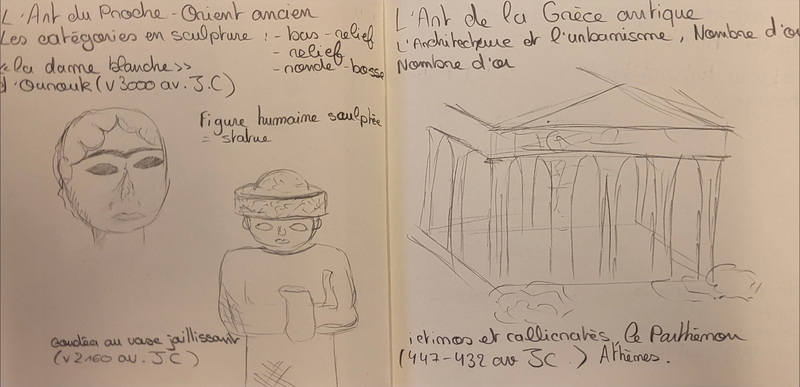 L'Art du Proche-Orient ancien
Les catégories en sculpture : - bas-relief
- relief
- ronde-bosse
«la dame blanche»
d'Ourouk (v 3000 av. J.C)
Figure humaine sculptée
= statue
Goudéa au vase jaillissant
(v 2160 av. J.C)
L'Art de la Grèce antique
L'Architecture et l'urbanisme, Nombre d'or
Nombre d'or
ictinos et callicratès, Le Parthénon
(447-432 av J.C.) Athènes.